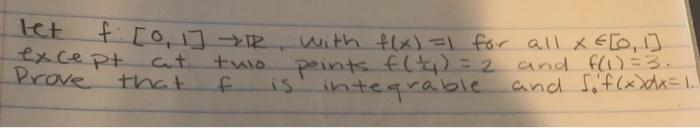 let f: [0,1] → ℝ, with f(x) = 1 for all x ∈ [0,1]
except at two points f(1/4) = 2 and f(1) = 3.
Prove that f is integrable and ∫₀¹ f(x)dx = 1.